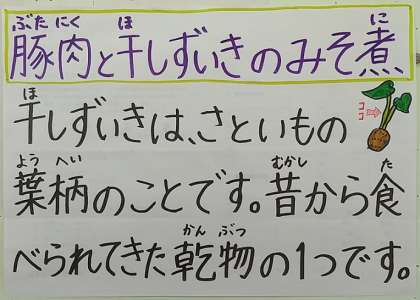 ぶた にく ほ に
豚肉と干しずいきのみそ煮
ほ
干しずいきは、さといもの
ココ
よう へい むかし た
葉柄のことです。昔から食
かん ぶつ
べられてきた乾物の1つです。